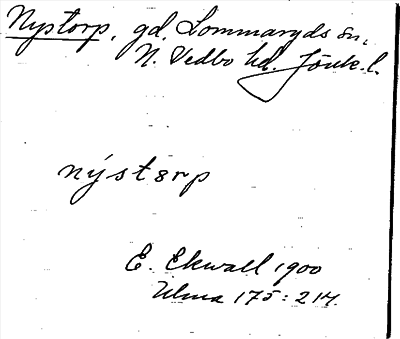 Nystorp, gd, Lommaryds sn,
N. Vedbo hd. Jönk. l.
nýstɵrp
E. Ekwall 1900
Ulma 175:214.